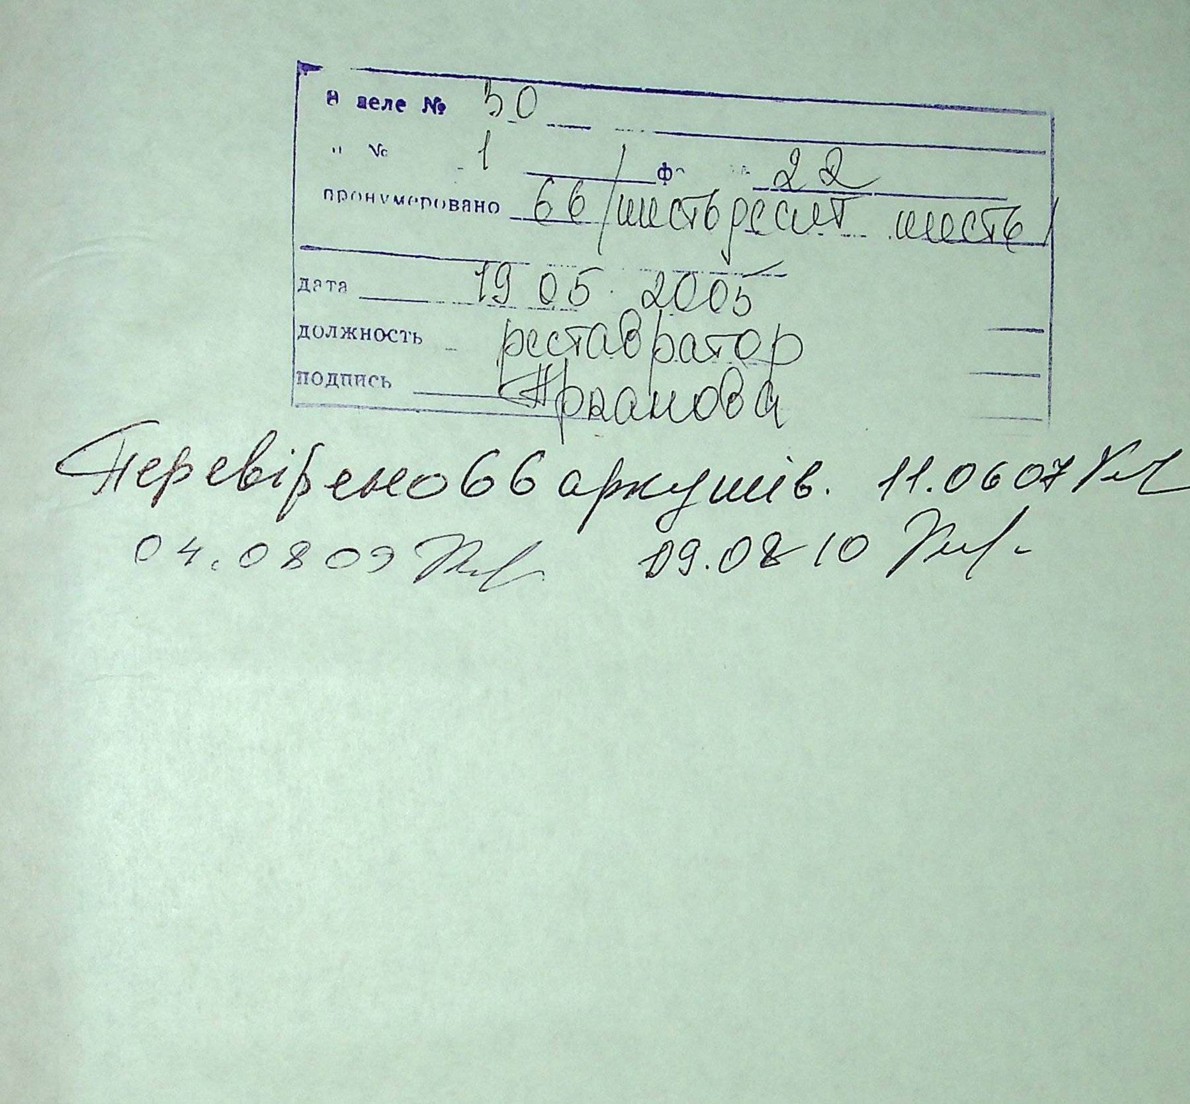 В деле № 50
" № 1 ф. 22
пронумеровано 66 /шестьдесят шесть/
дата 19 05. 2005
должность реставратор
подпись
Перевірено 66 аркушів. 11.06 07
04.08 09 09.08 10